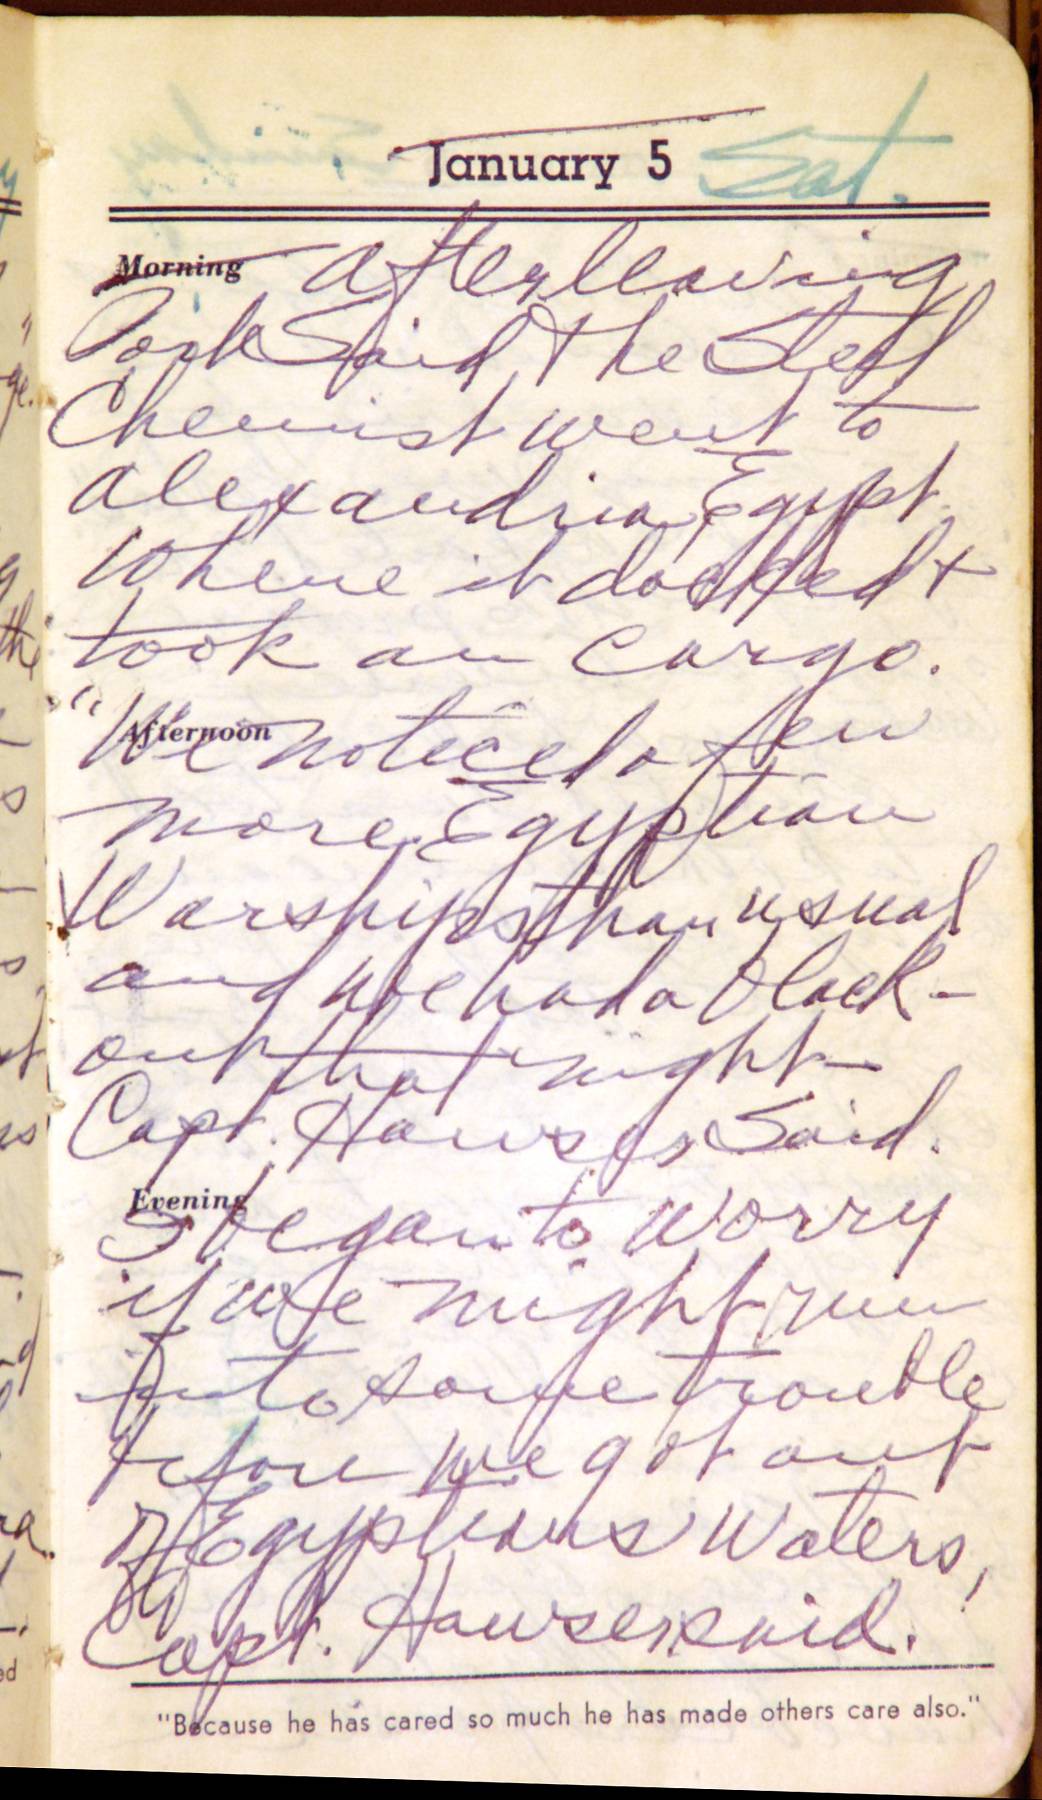 January 5 Sat.
Morning After leaving
Port Said, the Steel
Chemist went to
Alexandria, Egypt.
Where it docked +
took on cargo.
Afternoon "We noticed a few
more Egyptian
Warships than usual
and we had a black-
out that night—
Capt. Hawses Said.
Evening I began to worry
if we might run
into some trouble
before we got out
of Egyptians Waters,
Capt. Hawser said.
"Because he has cared so much he has made others care also."